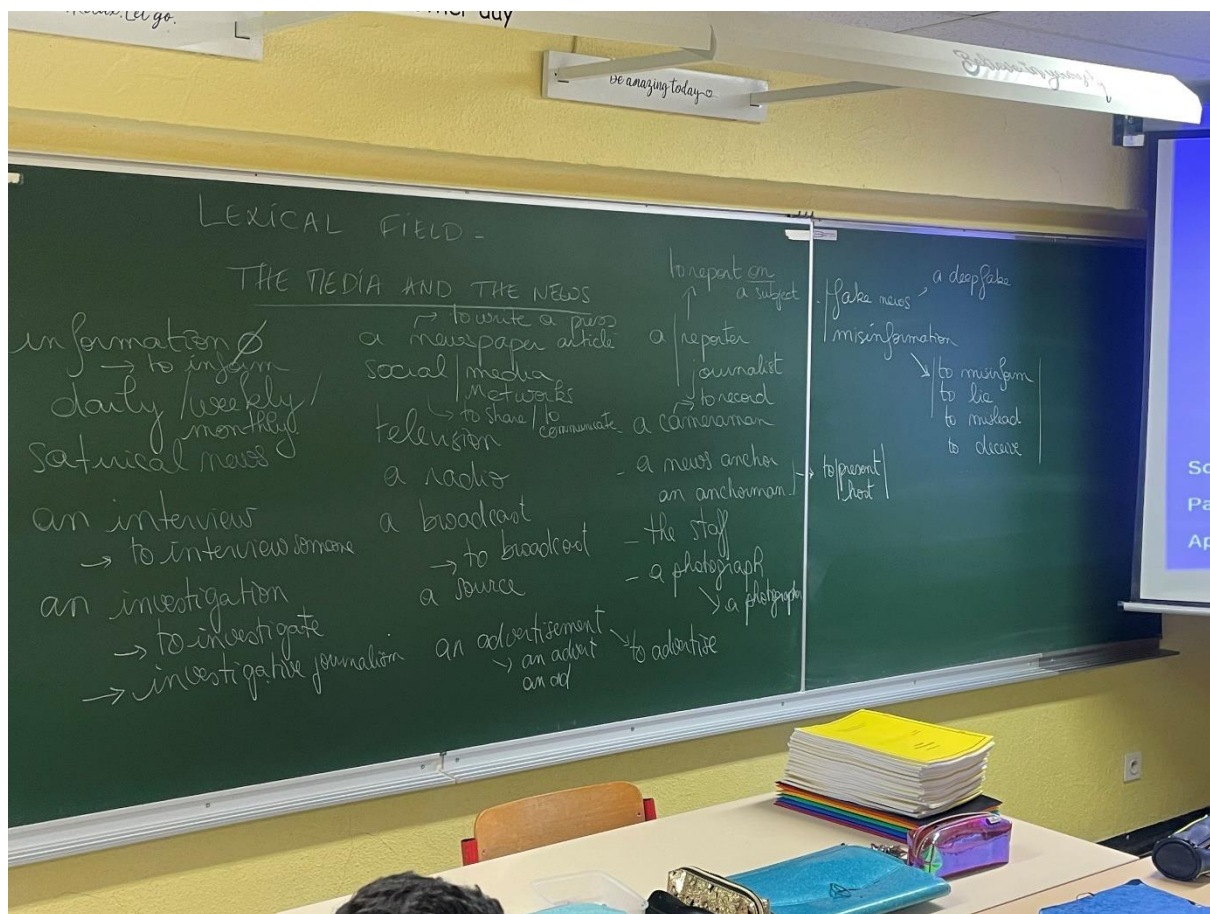 Let go.
day
be amazing today
LEXICAL FIELD -
THE MEDIA AND THE NEWS
information Ø
→ to inform
daily / weekly /
monthly
satirical news
an interview
→ to interview someone
an investigation
→ to investigate
→ investigative journalism
→ to write a press
a newspaper article
social media
networks
→ to share / to
communicate
television
a radio
a broadcast
→ to broadcast
a source
an advertisement → to advertise
→ an advert
an ad
to report on
a subject
a reporter
journalist
→ to record
- a cameraman
- a news anchor
an anchorman → to present
host
- the staff
- a photograph
→ a photographer
fake news → a deepfake
misinformation
→ to misinform
to lie
to mislead
to deceive
So
Pa
Ap